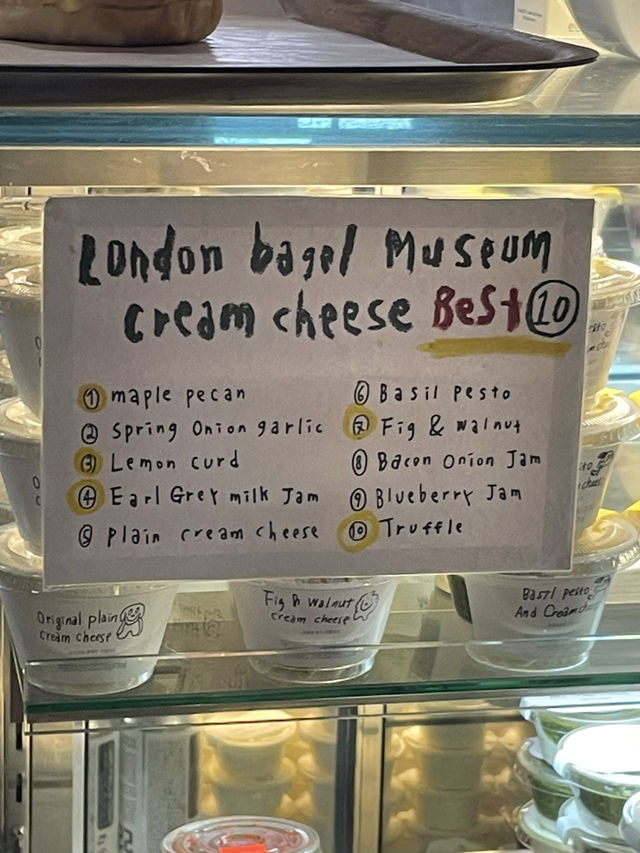 London bagel Museum
cream cheese Best 10
① maple pecan
② Spring Onion garlic
③ Lemon curd
④ Earl Grey milk Jam
⑤ Plain cream cheese
⑥ Basil Pesto
⑦ Fig & walnut
⑧ Bacon Onion Jam
⑨ Blueberry Jam
⑩ Truffle
Original plain
cream cheese
Fig & walnut
cream cheese
Basil pesto
And Cream